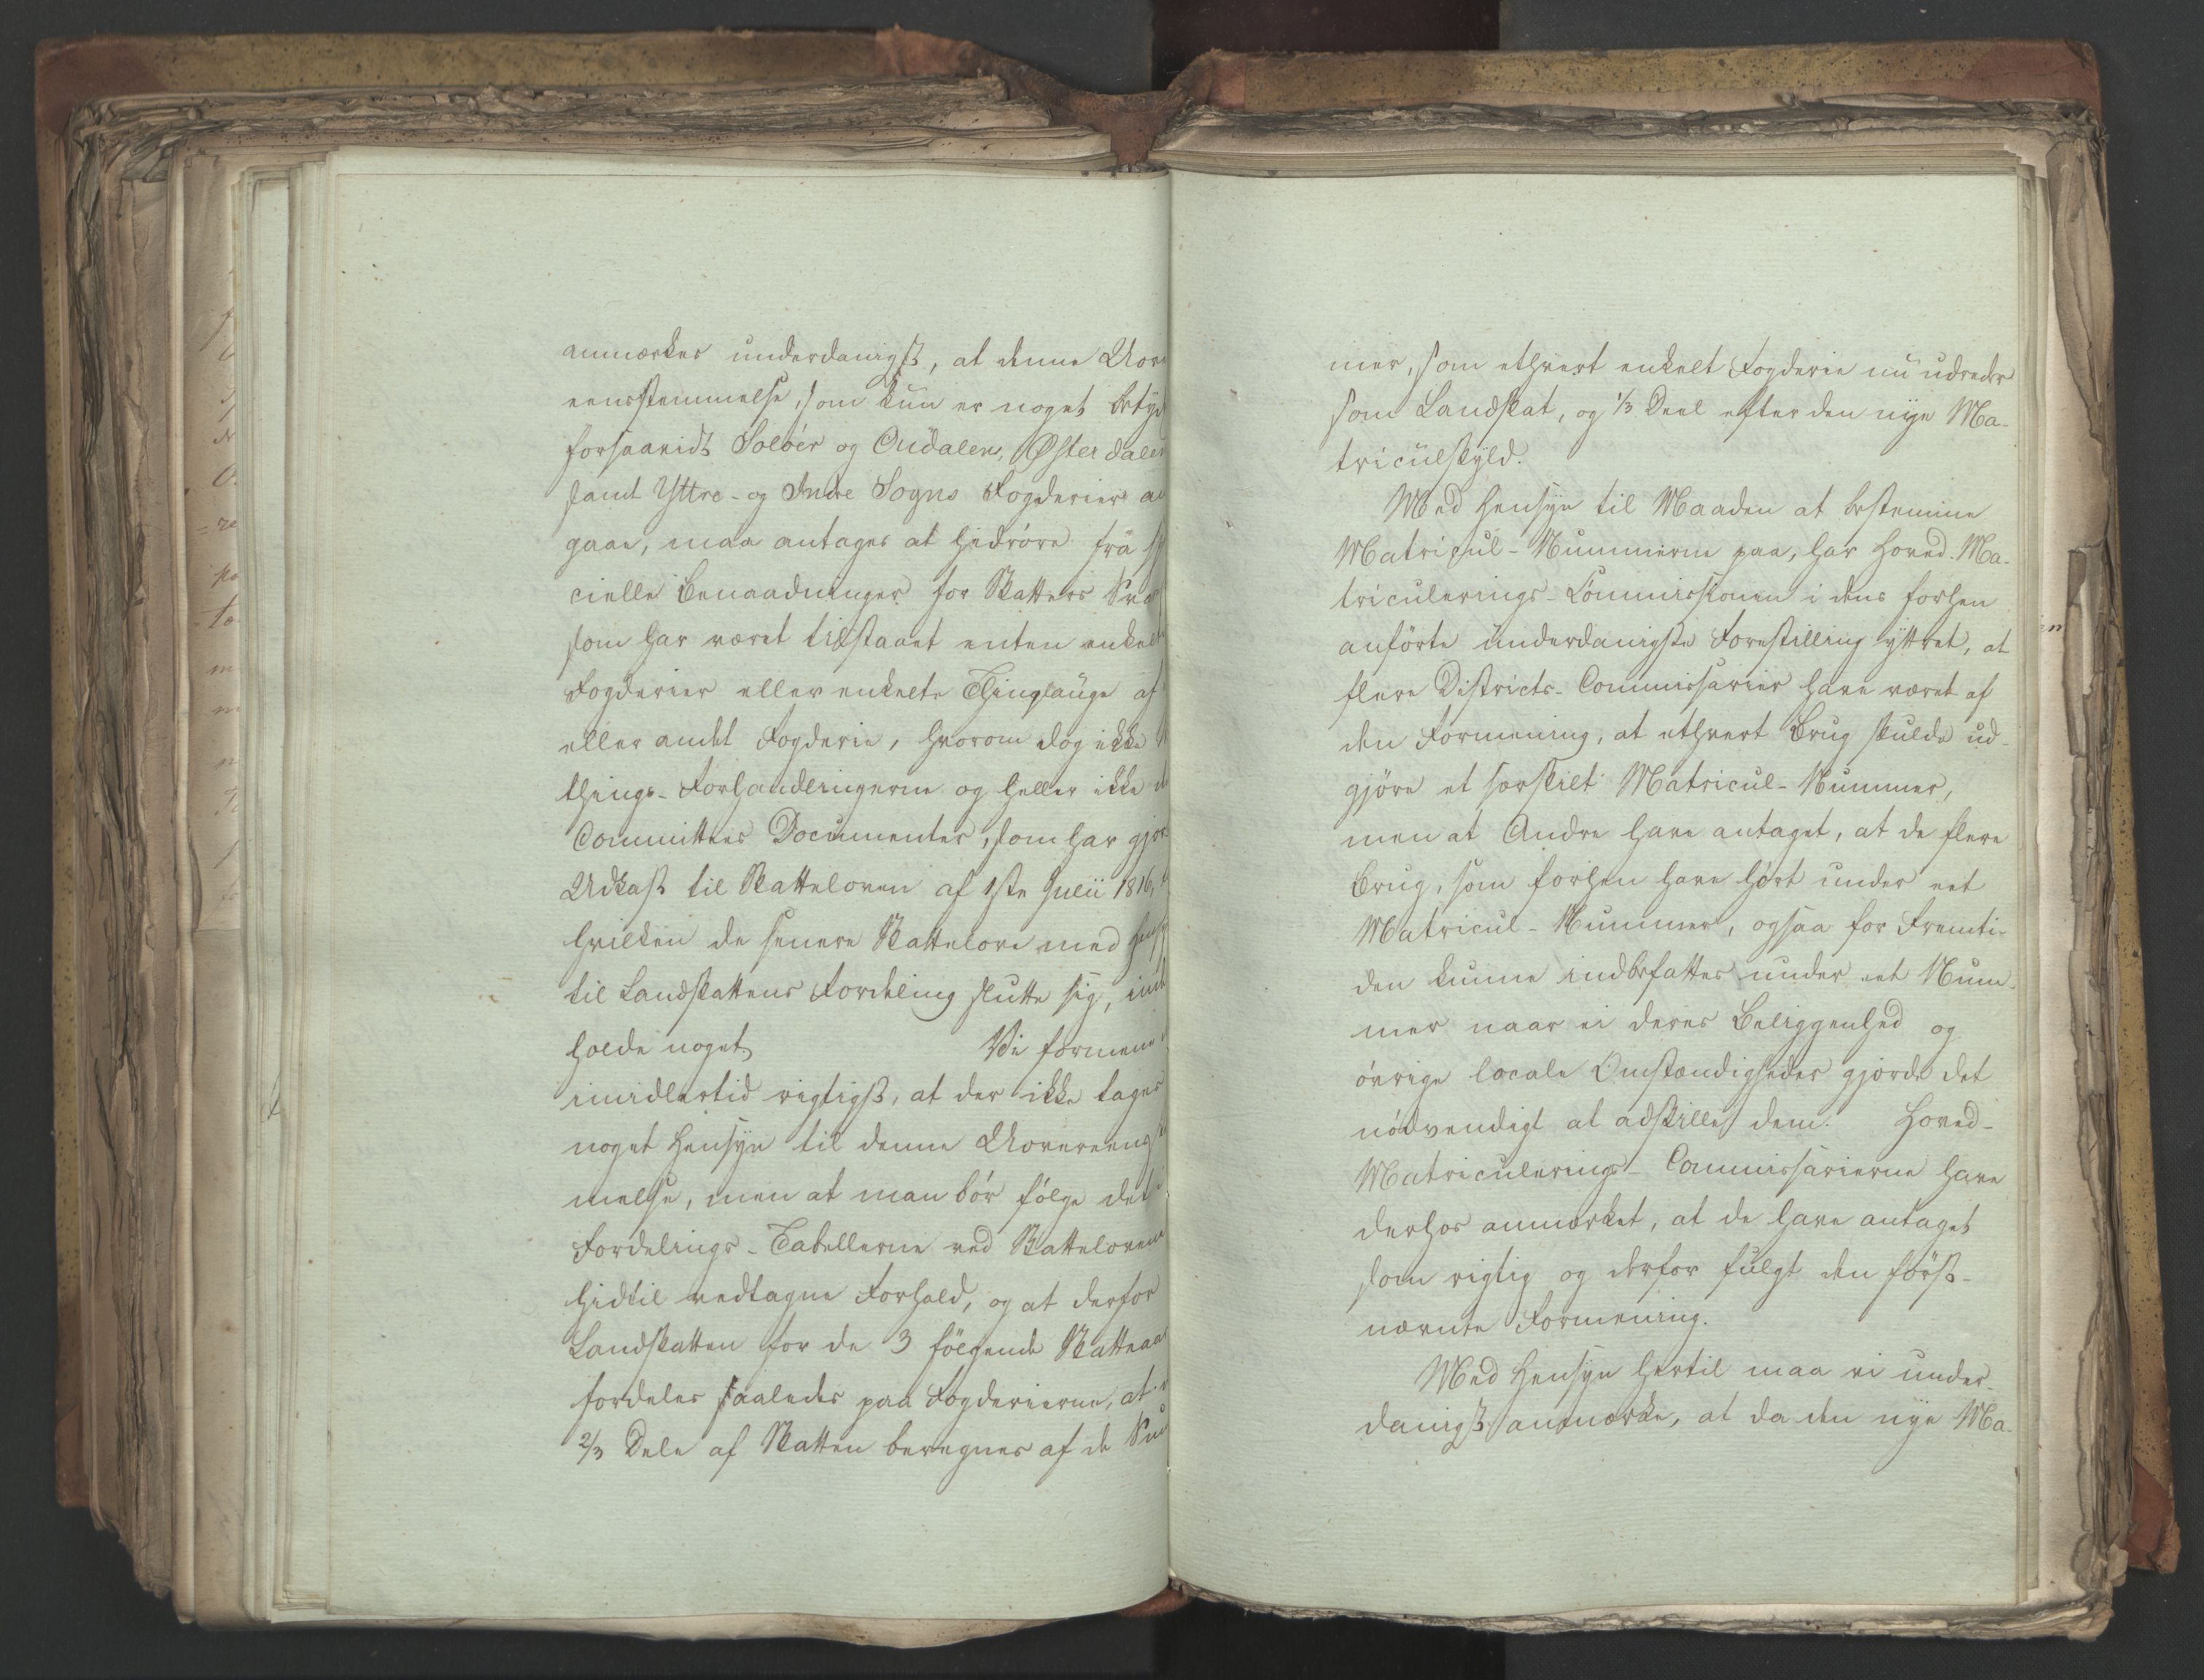 anmærkes underdanigst, at denne Uover
eensstemmelse, som kun er noget betyd
forsaavidt Soløer og Oudalens, Østerdalen
samt Yttre- og Indre Sogns Fogderier an
gaae, maa antages at hidrøre fra sp
cielle Benaadninger for Skatters
som har været tilstaaet enten enkelte
Fogderier eller enkelte Thinglauge af
eller andet Fogderie, hvorom dog ikke
things-Forhandlingerne og heller ikke
Committees Documenter, som har gjort
Udkast til Skatteloven af 1ste Julii 1816,
hvilken de senere Skattelove med Hensy
til Landskattens Fordeling slutte sig, inde
holde noget. Vi formene
imidlertid rigtigst, at der ikke tages
noget Hensyn til denne Uovereens
melse, men at man bør følge det
Fordelings-Tabellerne ved Skattelovene
hidtil vedtagne Forhold, og at derfor
Landskatten for de 3 følgende Skatteaar
fordeles saaledes paa Fogderierne, at
2/3 Dele af Skatten beregnes af de
mer, som ethvert enkelt Fogderie nu udreder
som Landskat, og 1/3 Deel efter den nye Ma-
triculskyld.
Med Hensyn til Maaden at bestemme
Matricul-Nummerne paa, har Hoved-Ma-
triculerings-Commissionen i dens forhen
anførte underdanigste Forestilling yttret, at
flere Districts-Commissarier have været af
den Formening, at ethvert Brug skulde ud-
gjøre et særskilt Matricul-Nummer,
men at Andre have antaget, at de flere
Brug, som forhen have hørt under eet
Matricul-Nummer, ogsaa for Fremti-
den kunne indbefattes under eet Num-
mer naar ei deres Beliggenhed og
øvrige locale Omstændigheder gjorde det
nødvendigt at adskille dem. Hoved-
Matriculerings-Commissarierne have
derhos anmærket, at de have antaget
som rigtig og derfor fulgt den først-
nævnte Formening.
Med Hensyn hertil maa vi under-
danigst anmærke, at da den nye Ma-